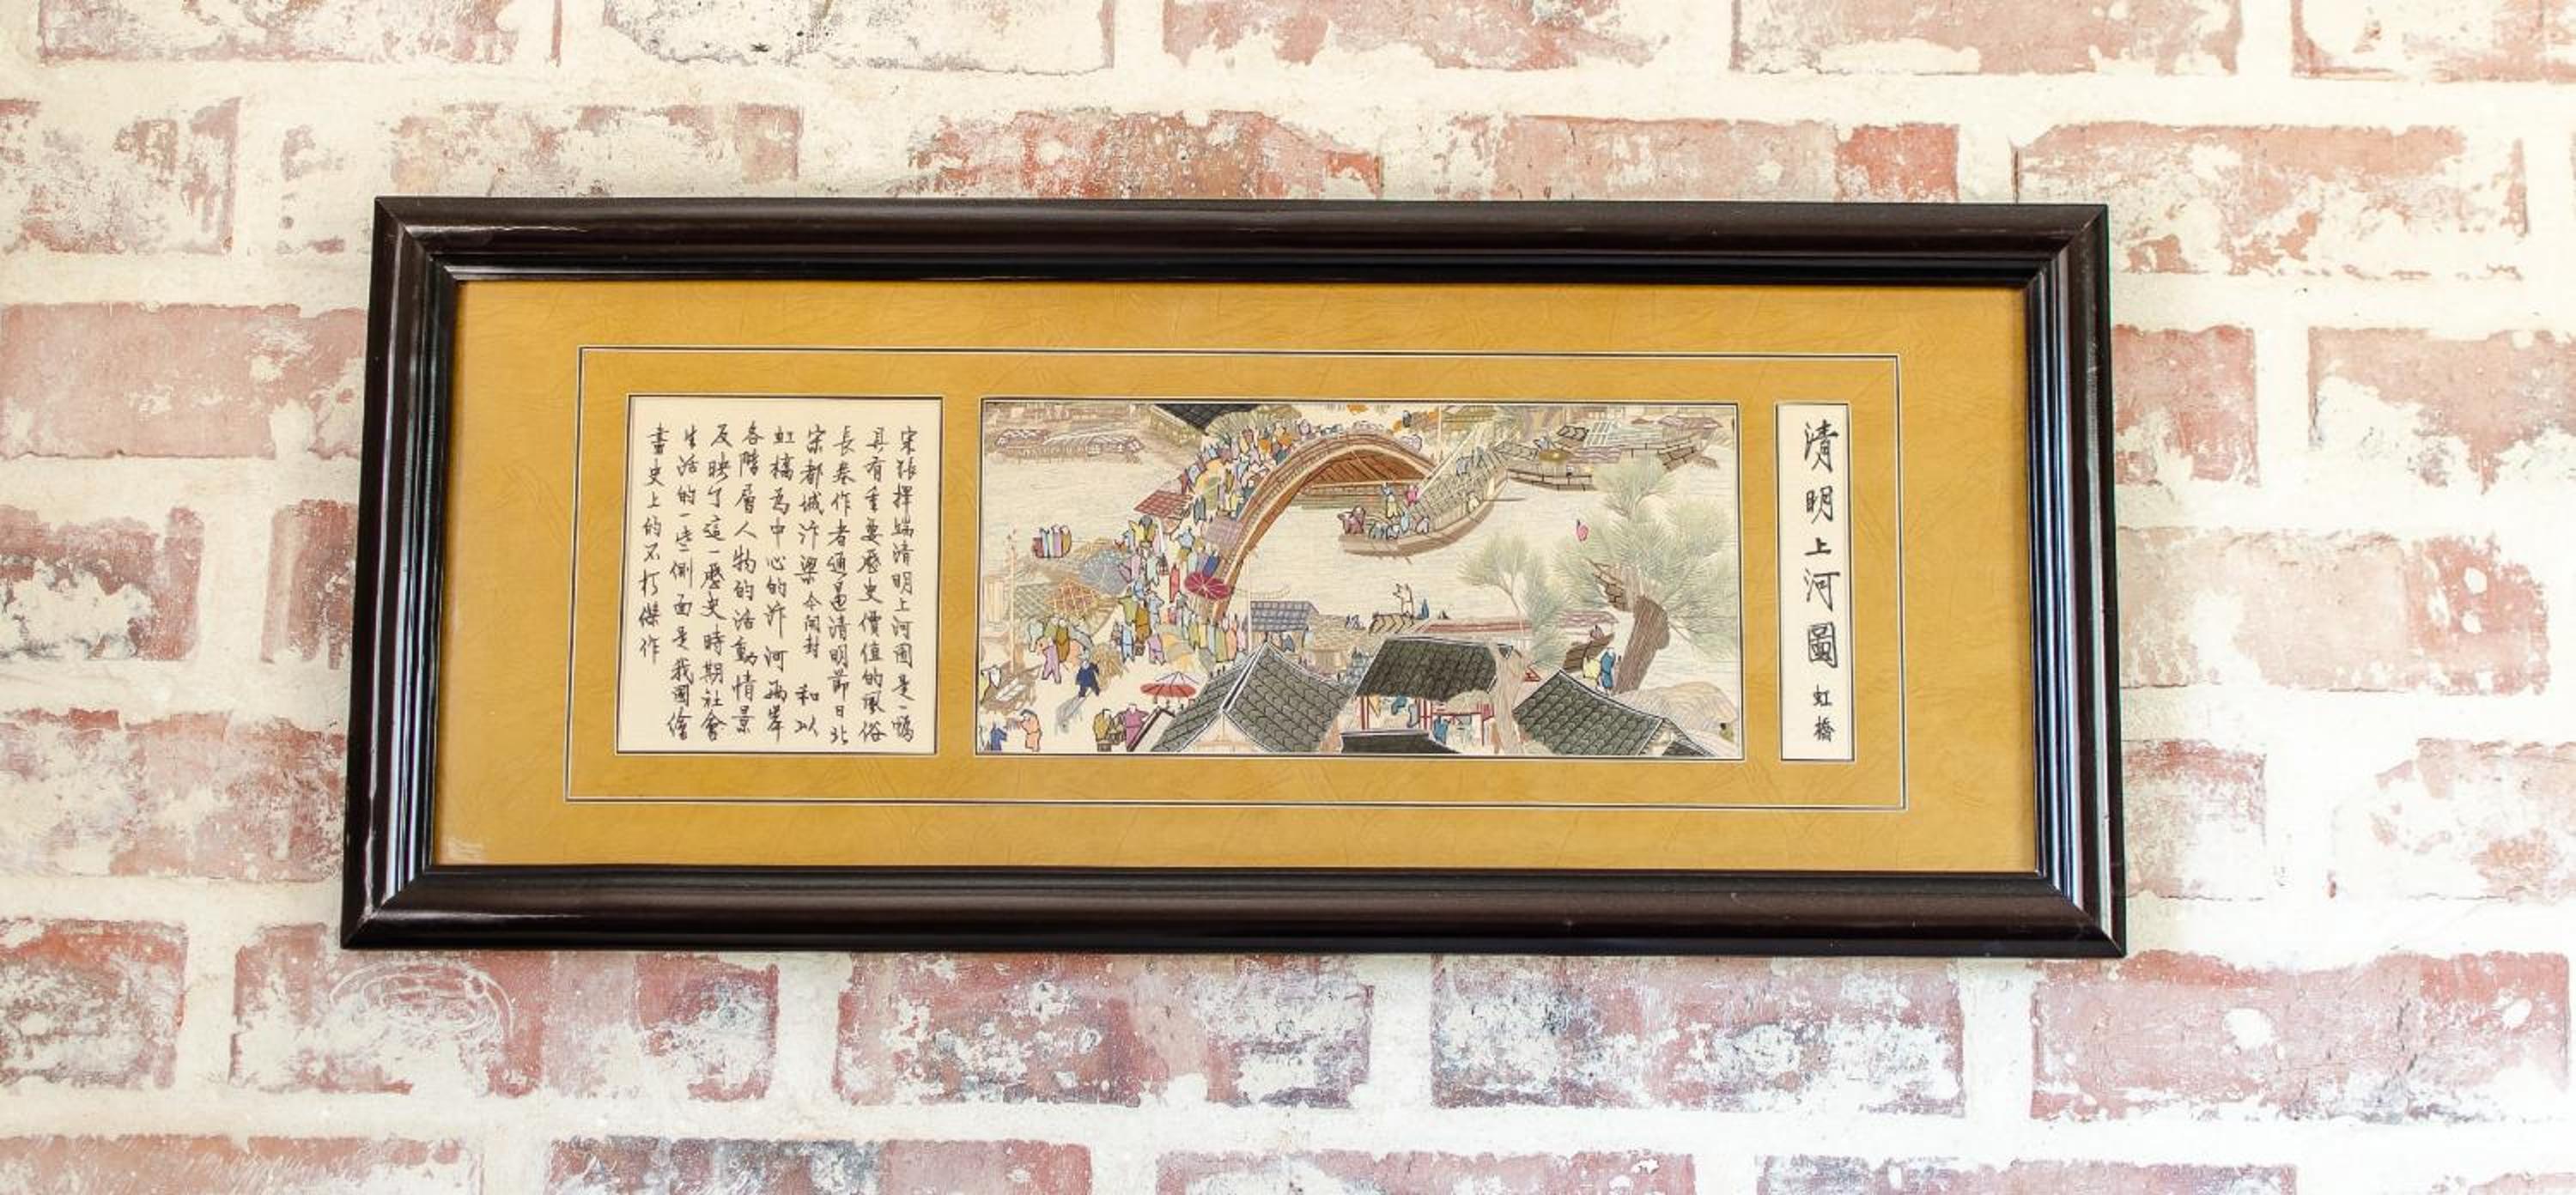 清明上河圖 虹橋
宋張擇端清明上河圖是一幅
具有重要歷史價值的風俗
長卷作者通過清明節日北
宋都城汴梁今開封 和以
虹橋為中心的汴河兩岸
各階層人物的活動情景
反映了這一歷史時期社會
生活的一些側面是我國繪
畫史上的不朽傑作